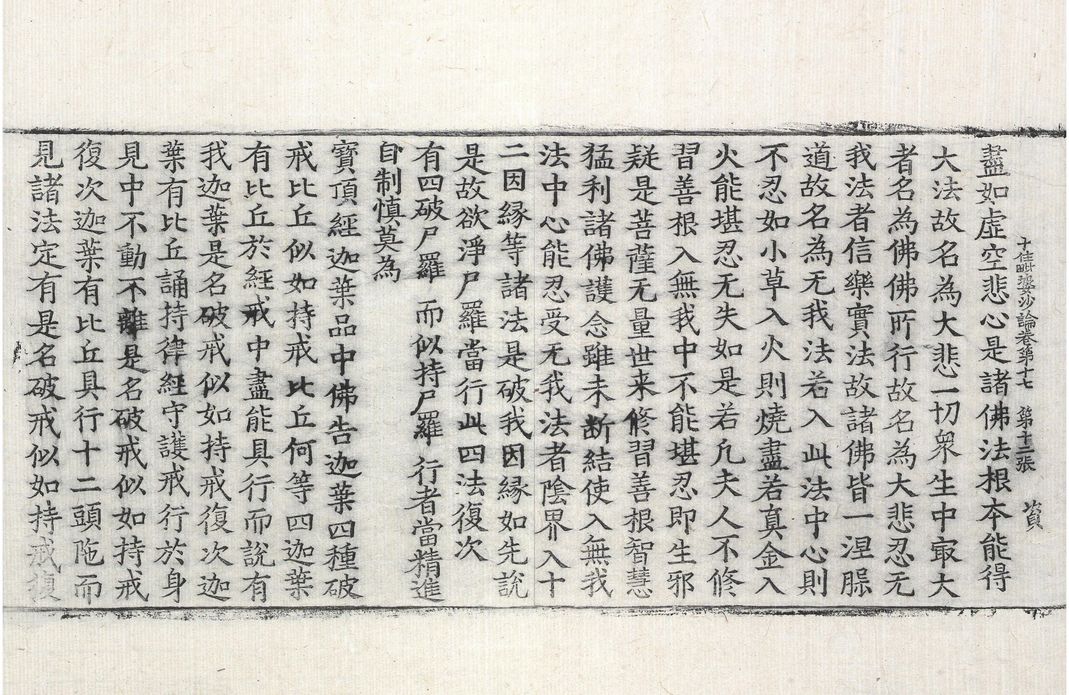 盡如虛空悲心是諸佛法根本能得
十住毗婆沙論卷第十七 第十三張 資
大法故名為大悲一切衆生中㝡大
者名為佛佛所行故名為大悲忍无
我法者信樂實法故諸佛皆一涅槃
道故名為无我法若入此法中心則
不忍如小草入火則燒盡若真金入
火能堪忍无失如是若凡夫人不修
習善根入無我中不能堪忍即生邪
疑是菩薩无量世来修習善根智慧
猛利諸佛護念雖未断結使入無我
法中心能忍受无我法者陰界入十
二因縁等諸法是破我因縁如先說
是故欲淨尸羅當行此四法復次
有四破尸羅 而似持尸羅 行者當精進
自制慎莫為
寶頂經迦葉品中佛告迦葉四種破
戒比丘似如持戒比丘何等四迦葉
有比丘於經戒中盡能具行而說有
我迦葉是名破戒似如持戒復次迦
葉有比丘誦持律經守護戒行於身
見中不動不離是名破戒似如持戒
復次迦葉有比丘具行十二頭陁而
見諸法定有是名破戒似如持戒復